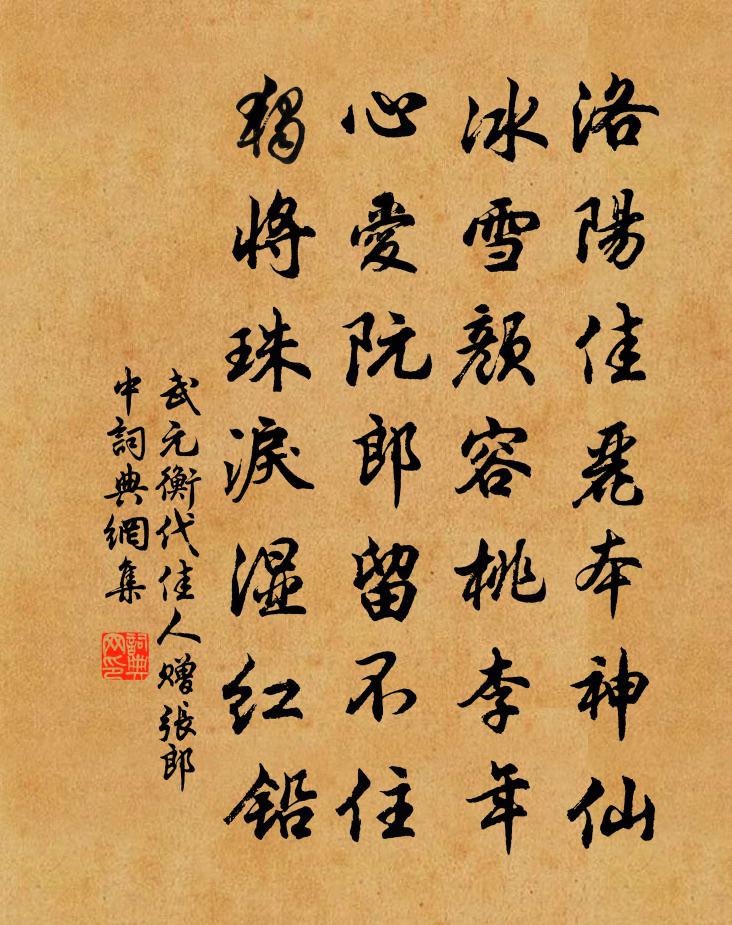 洛陽佳麗本神仙
冰雪顏容桃李年
心愛阮郎留不住
獨將珠淚湿红鉛
武元衡代佳人赠張郎
中詞典網集
詞典
网印